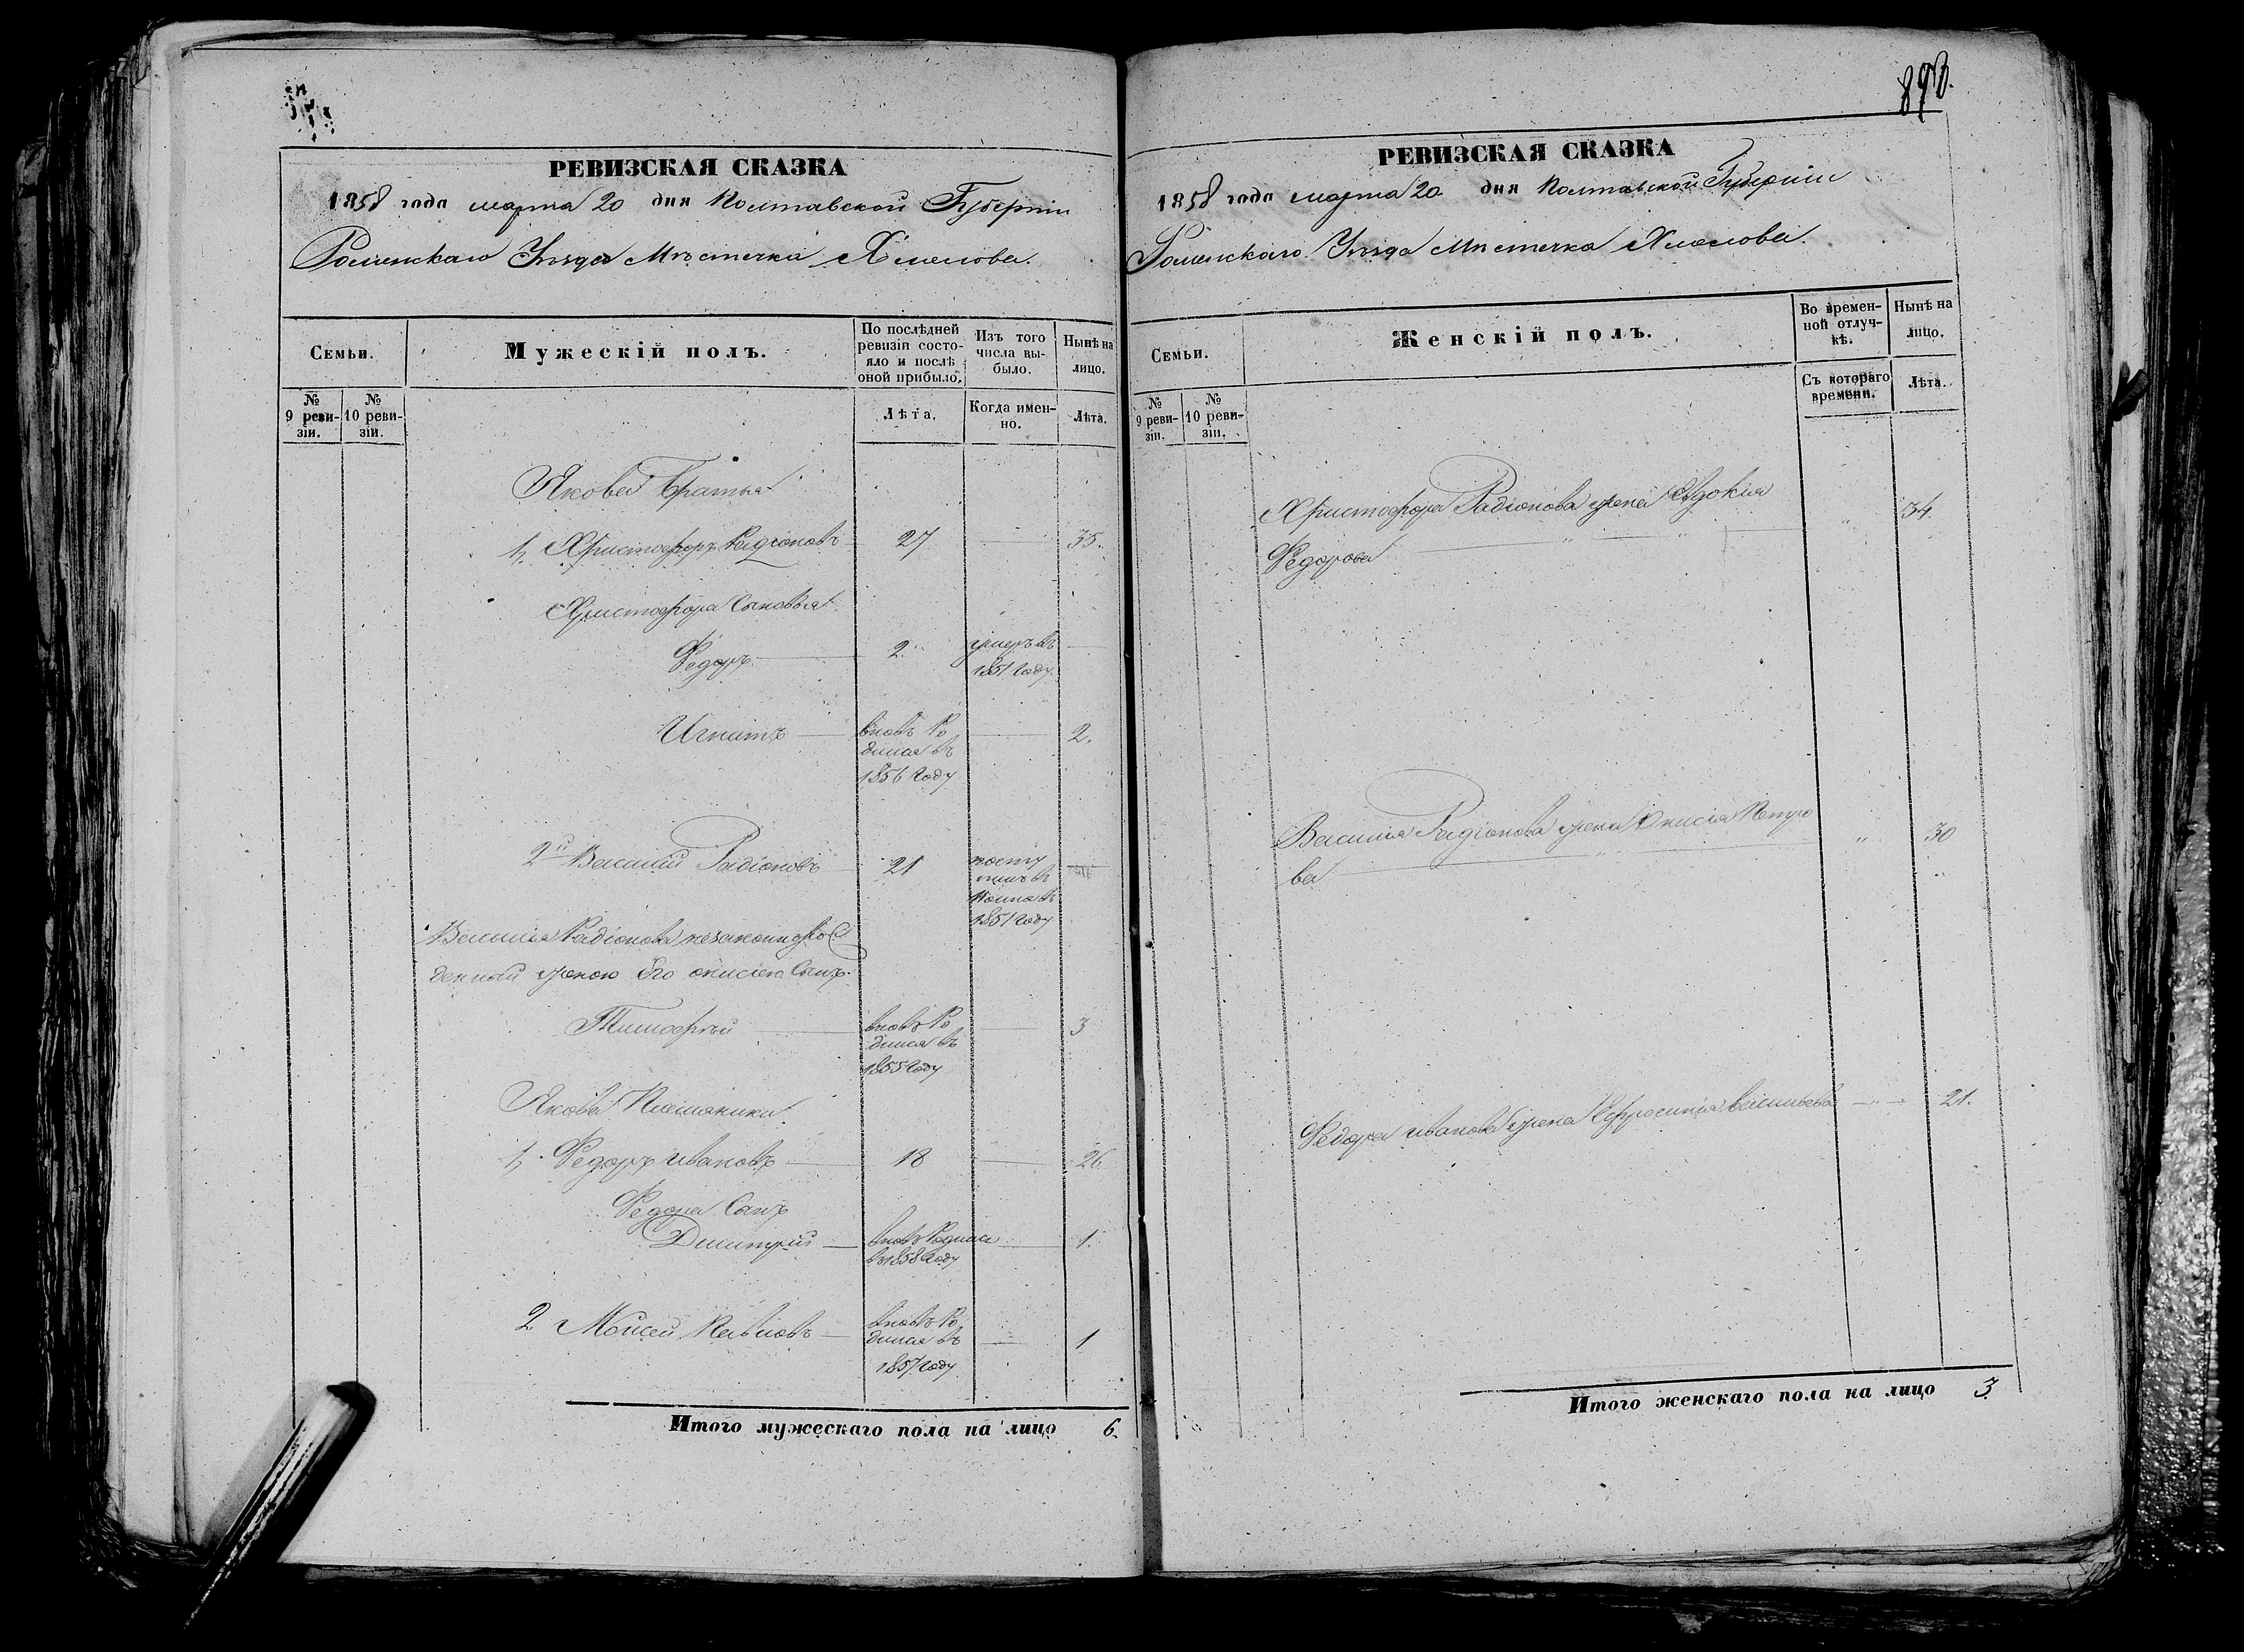 893.
РЕВИЗСКАЯ СКАЗКА
1858 года марта 20 дня Полтавской Губернiи
Роменскаго Уѣзда Мѣстечка Хмелова.
Семьи.
Мужескiй полъ.
По послѣдней
ревизiи состо-
яло и послѣ
оной прибыло.
Изъ того
числа вы-
было.
Нынѣ на
лицо.
№
9 реви-
зiи.
№
10 реви-
зiи.
Лѣта.
Когда имен-
но.
Лѣта.
Якова Братья
1, Христофоръ Радiоновъ 27 35.
Христофора Сыновья
Федоръ 2 умеръ въ
1851 году.
Игнатъ вновь Ро 2.
дился въ
1856 году
2й Василiй Радiоновъ 21 посту
пилъ въ
1851 году
Василiя Радiонова незаконнорож
денный женою Его Анисiею Сынъ.
Тимофѣй вновь Ро 3
дился въ
1855 году
Якова Племяники
1, Федоръ Ивановъ 18 26
Федора Сынъ
Дмитрiй вновь Родился 1.
въ 1858 году
2 Моисей Павловъ вновь Ро 1
дился въ
1857 году
Итого мужескаго пола на лицо 6.
РЕВИЗСКАЯ СКАЗКА
1858 года марта 20 дня Полтавской Губернiи
Роменскаго Уѣзда Мѣстечка Хмелова.
Семьи.
Женскiй полъ.
Во времен-
ной отлуч-
кѣ.
Нынѣ на
лицо.
№
9 реви-
зiи.
№
10 реви-
зiи.
Съ котораго
времени.
Лѣта.
Христофора Радiонова жена Евдокiя 34.
Федорова
Василiя Радiонова жена Анисiя Петро 30
ва
Федора Иванова жена Ефросинiя Васильева 21.
Итого женскаго пола на лицо 3